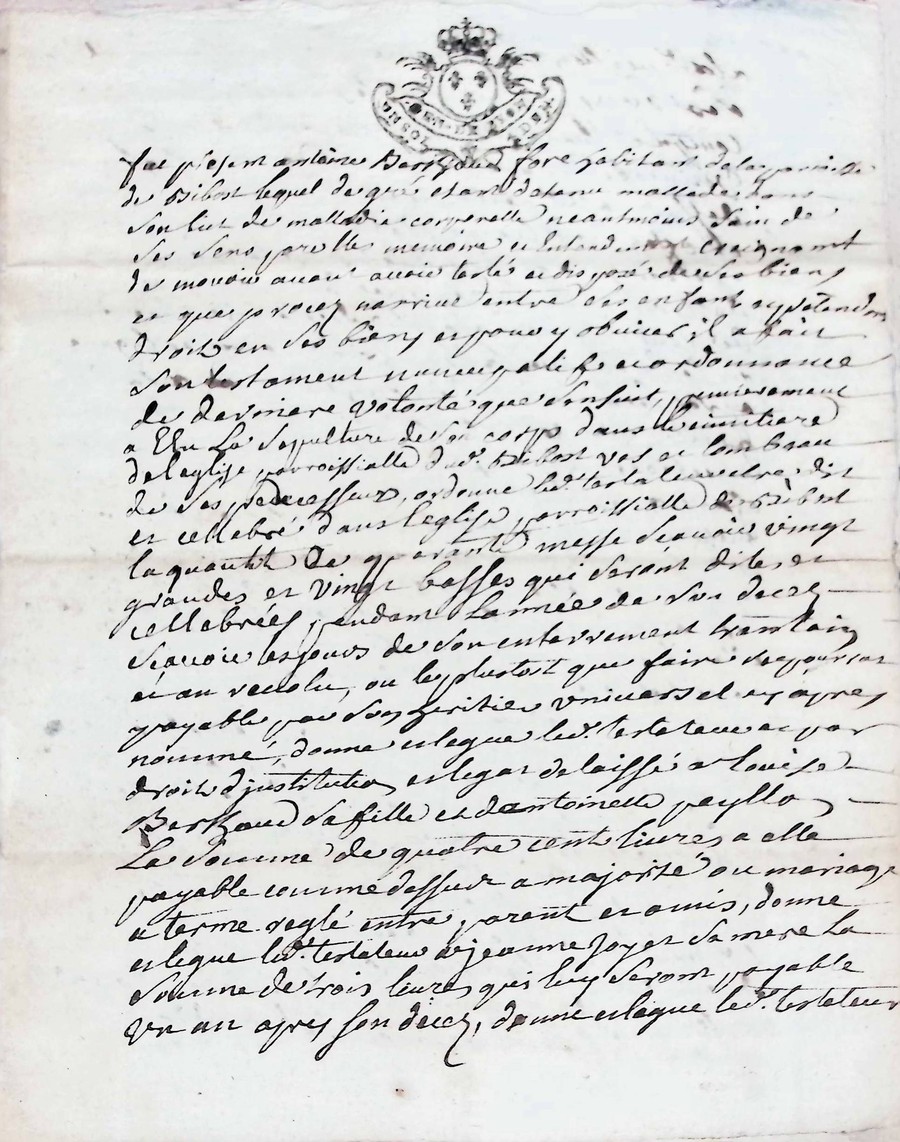 GEN. DE LYON
UN SOL
fut présent antoine Berthoud fore habitant de la parroisse
de Bibost lequel de gré etant detenu mallade dans
son lict de malladie corporelle neautmoins sain de
ses sens parolle memoire et entendement craignant
de mourir avant avoir testé et disposé de ses biens
et que procez n'arrive entre ses enfants et prétendans
droit en ses biens et pour y obvier il a fait
son testament nuncupatif et ordonnance
de derniere volonté que s'ensuit, premierement
a Elu La Sepulture de son corps dans le cimitiere
de l'eglise parroissialle dud. Bibost vas et tombeau
de ses predecesseurs, ordonne led. testateur etre dit
et cellebré dans l'eglise parroissialle de Bibost
la quantité de quarante messe scavoir vingt
grandes et vingt basses qui seront dites et
cellebrées pendant l'année de son decez
scavoir les jours de son enterrement trantain
et an revolu, ou le plustoit que faire se pourrat
payable par son heritier universel cy apres
nommé, donne et legue led. testateur et par
droit d'institution et legat delaissé a Louise
Berthoud sa fille et d'antoinette peylloz
La somme de quatre cent livres a elle
payable comme dessus a majorité ou mariage
a terme reglé entre parent et amis, donne
et legue led. testateur a jeanne joyet sa mere la
somme de trois livres qui luy seront payable
un an apres son decez, donne et legue led. testateur